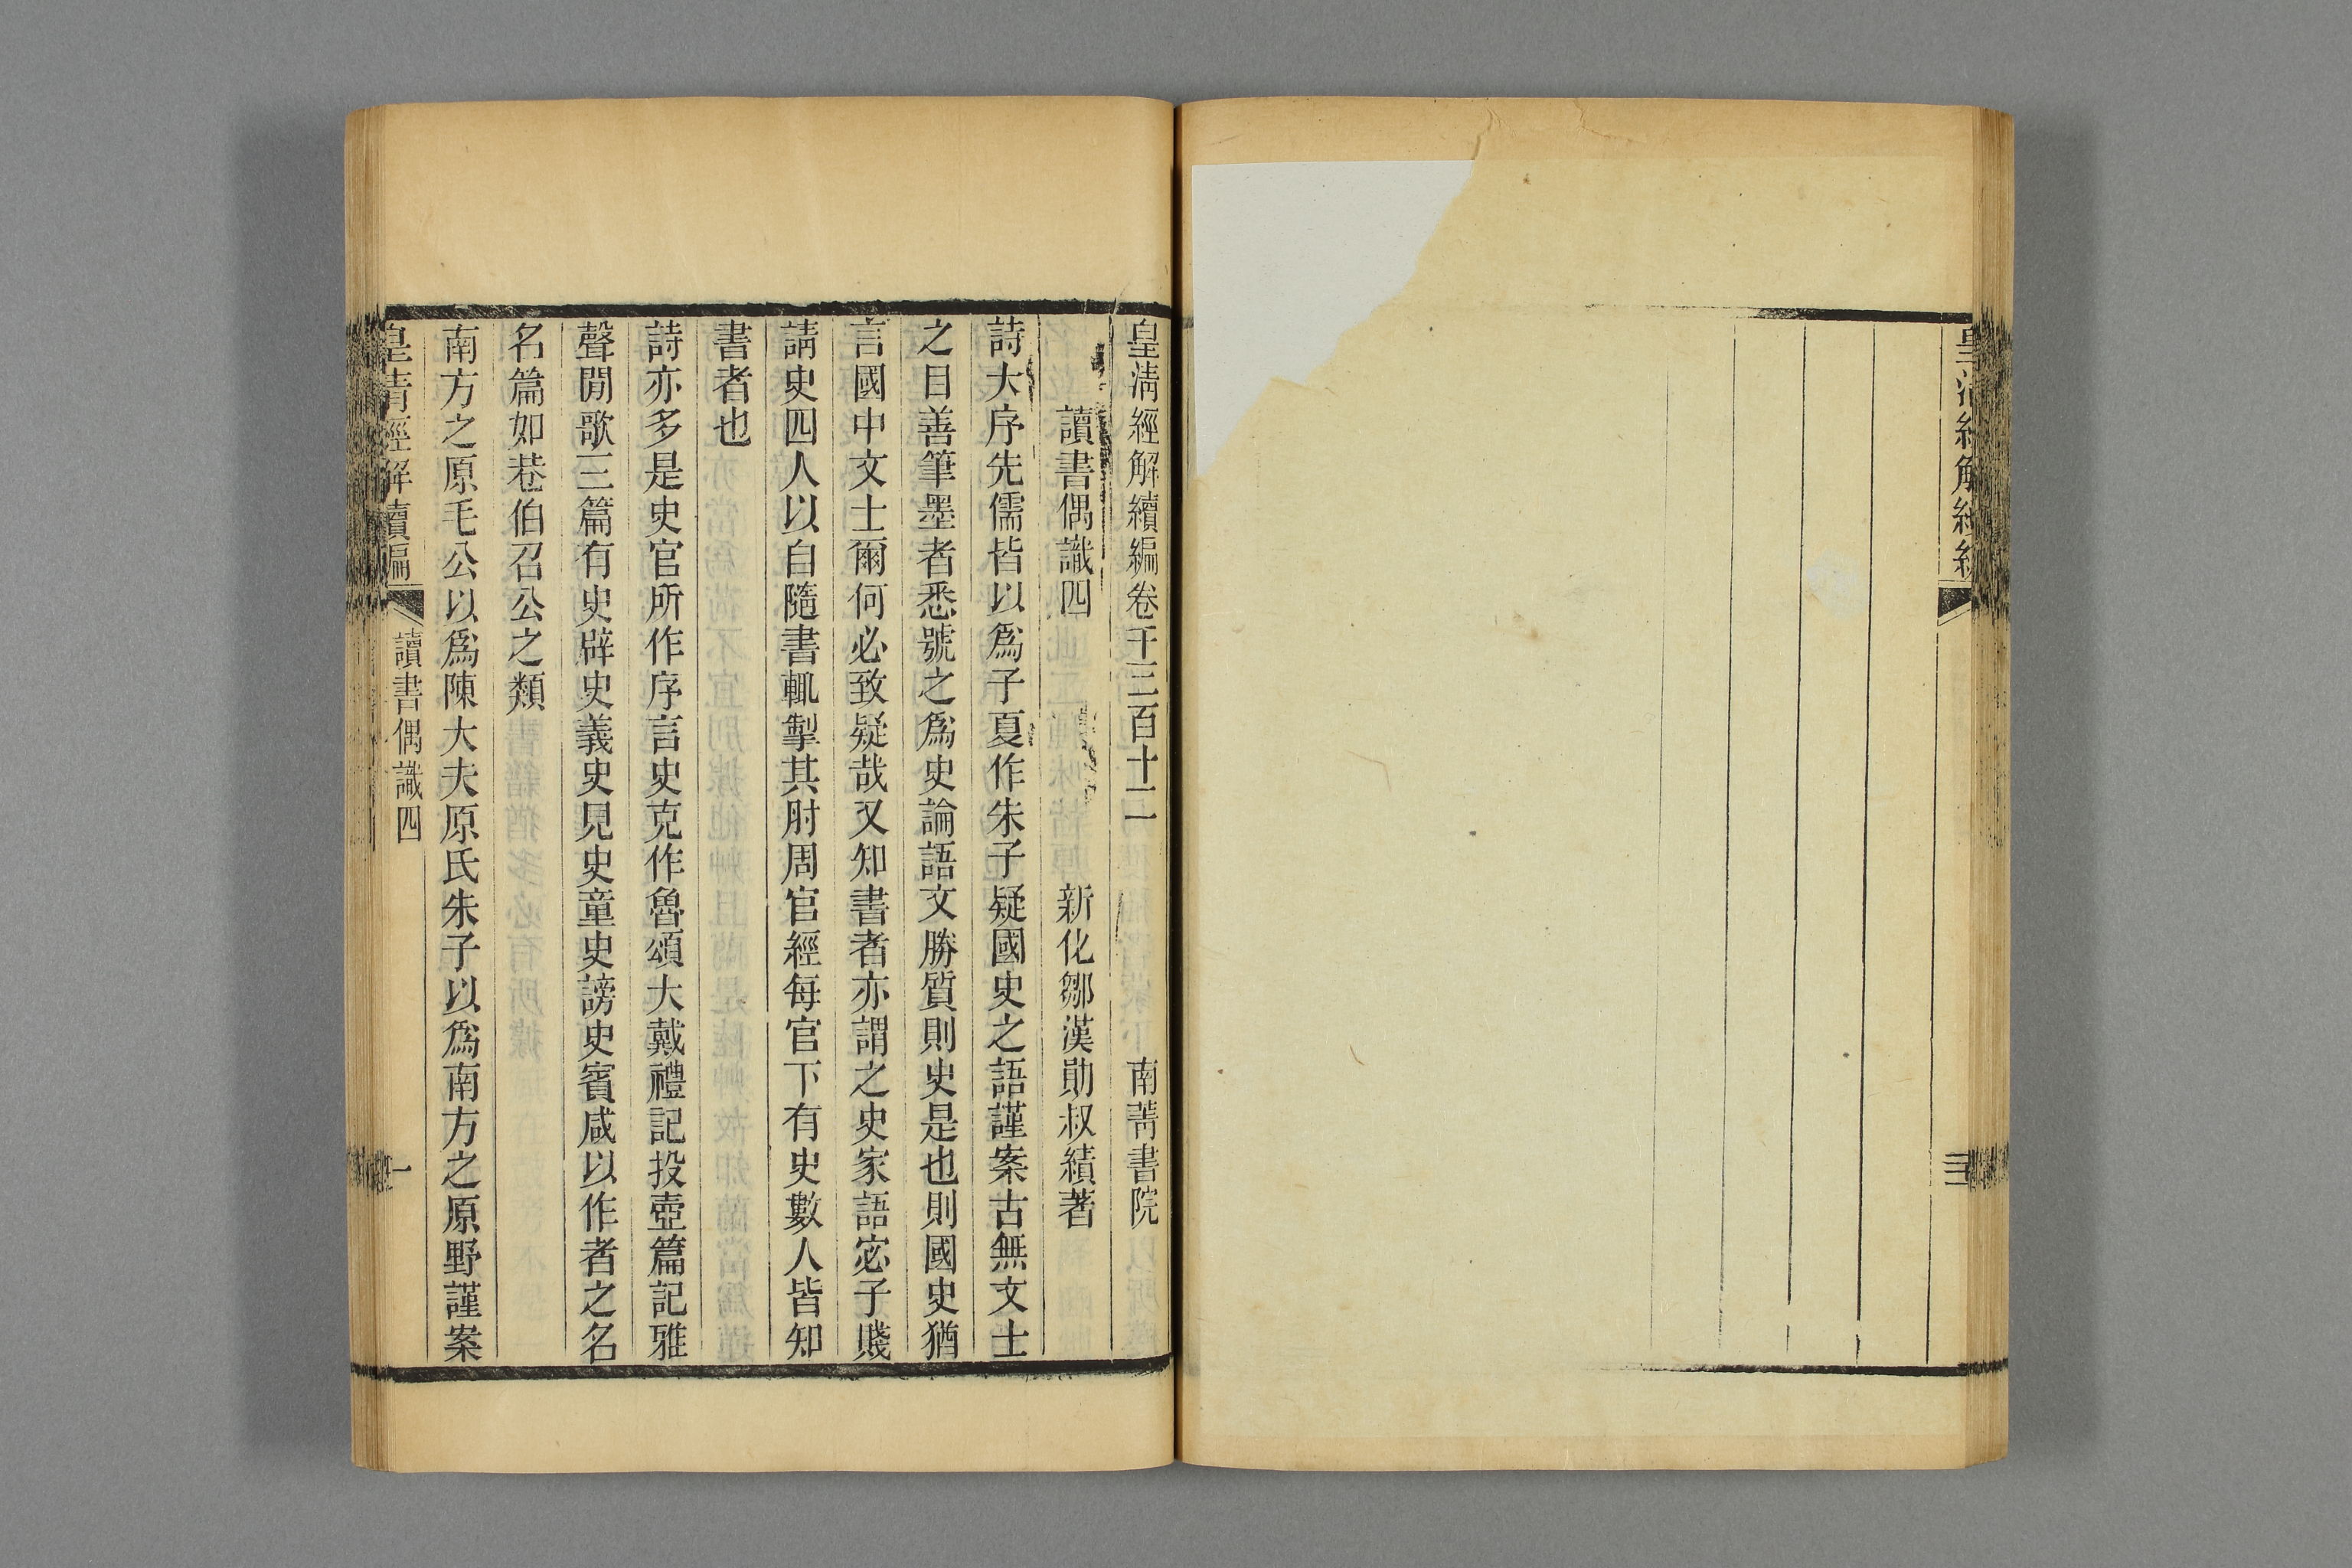 皇清經解續編
三
皇清經解續編卷千三百十二 南菁書院
讀書偶識四 新化鄒漢勛叔績著
詩大序先儒皆以爲子夏作朱子疑國史之語謹案古無文士
之目善筆墨者悉號之爲史論語文勝質則史是也則國史猶
言國中文士爾何必致疑哉又知書者亦謂之史家語宓子賤
請史四人以自隨書輒掣其肘周官經每官下有史數人皆知
書者也
詩亦多是史官所作序言史克作魯頌大戴禮記投壺篇記雅
聲閒歌三篇有史辟史義史見史童史謗史賓咸以作者之名
名篇如巷伯召公之類
南方之原毛公以爲陳大夫原氏朱子以爲南方之原野謹案
皇清經解續編
讀書偶識四
一